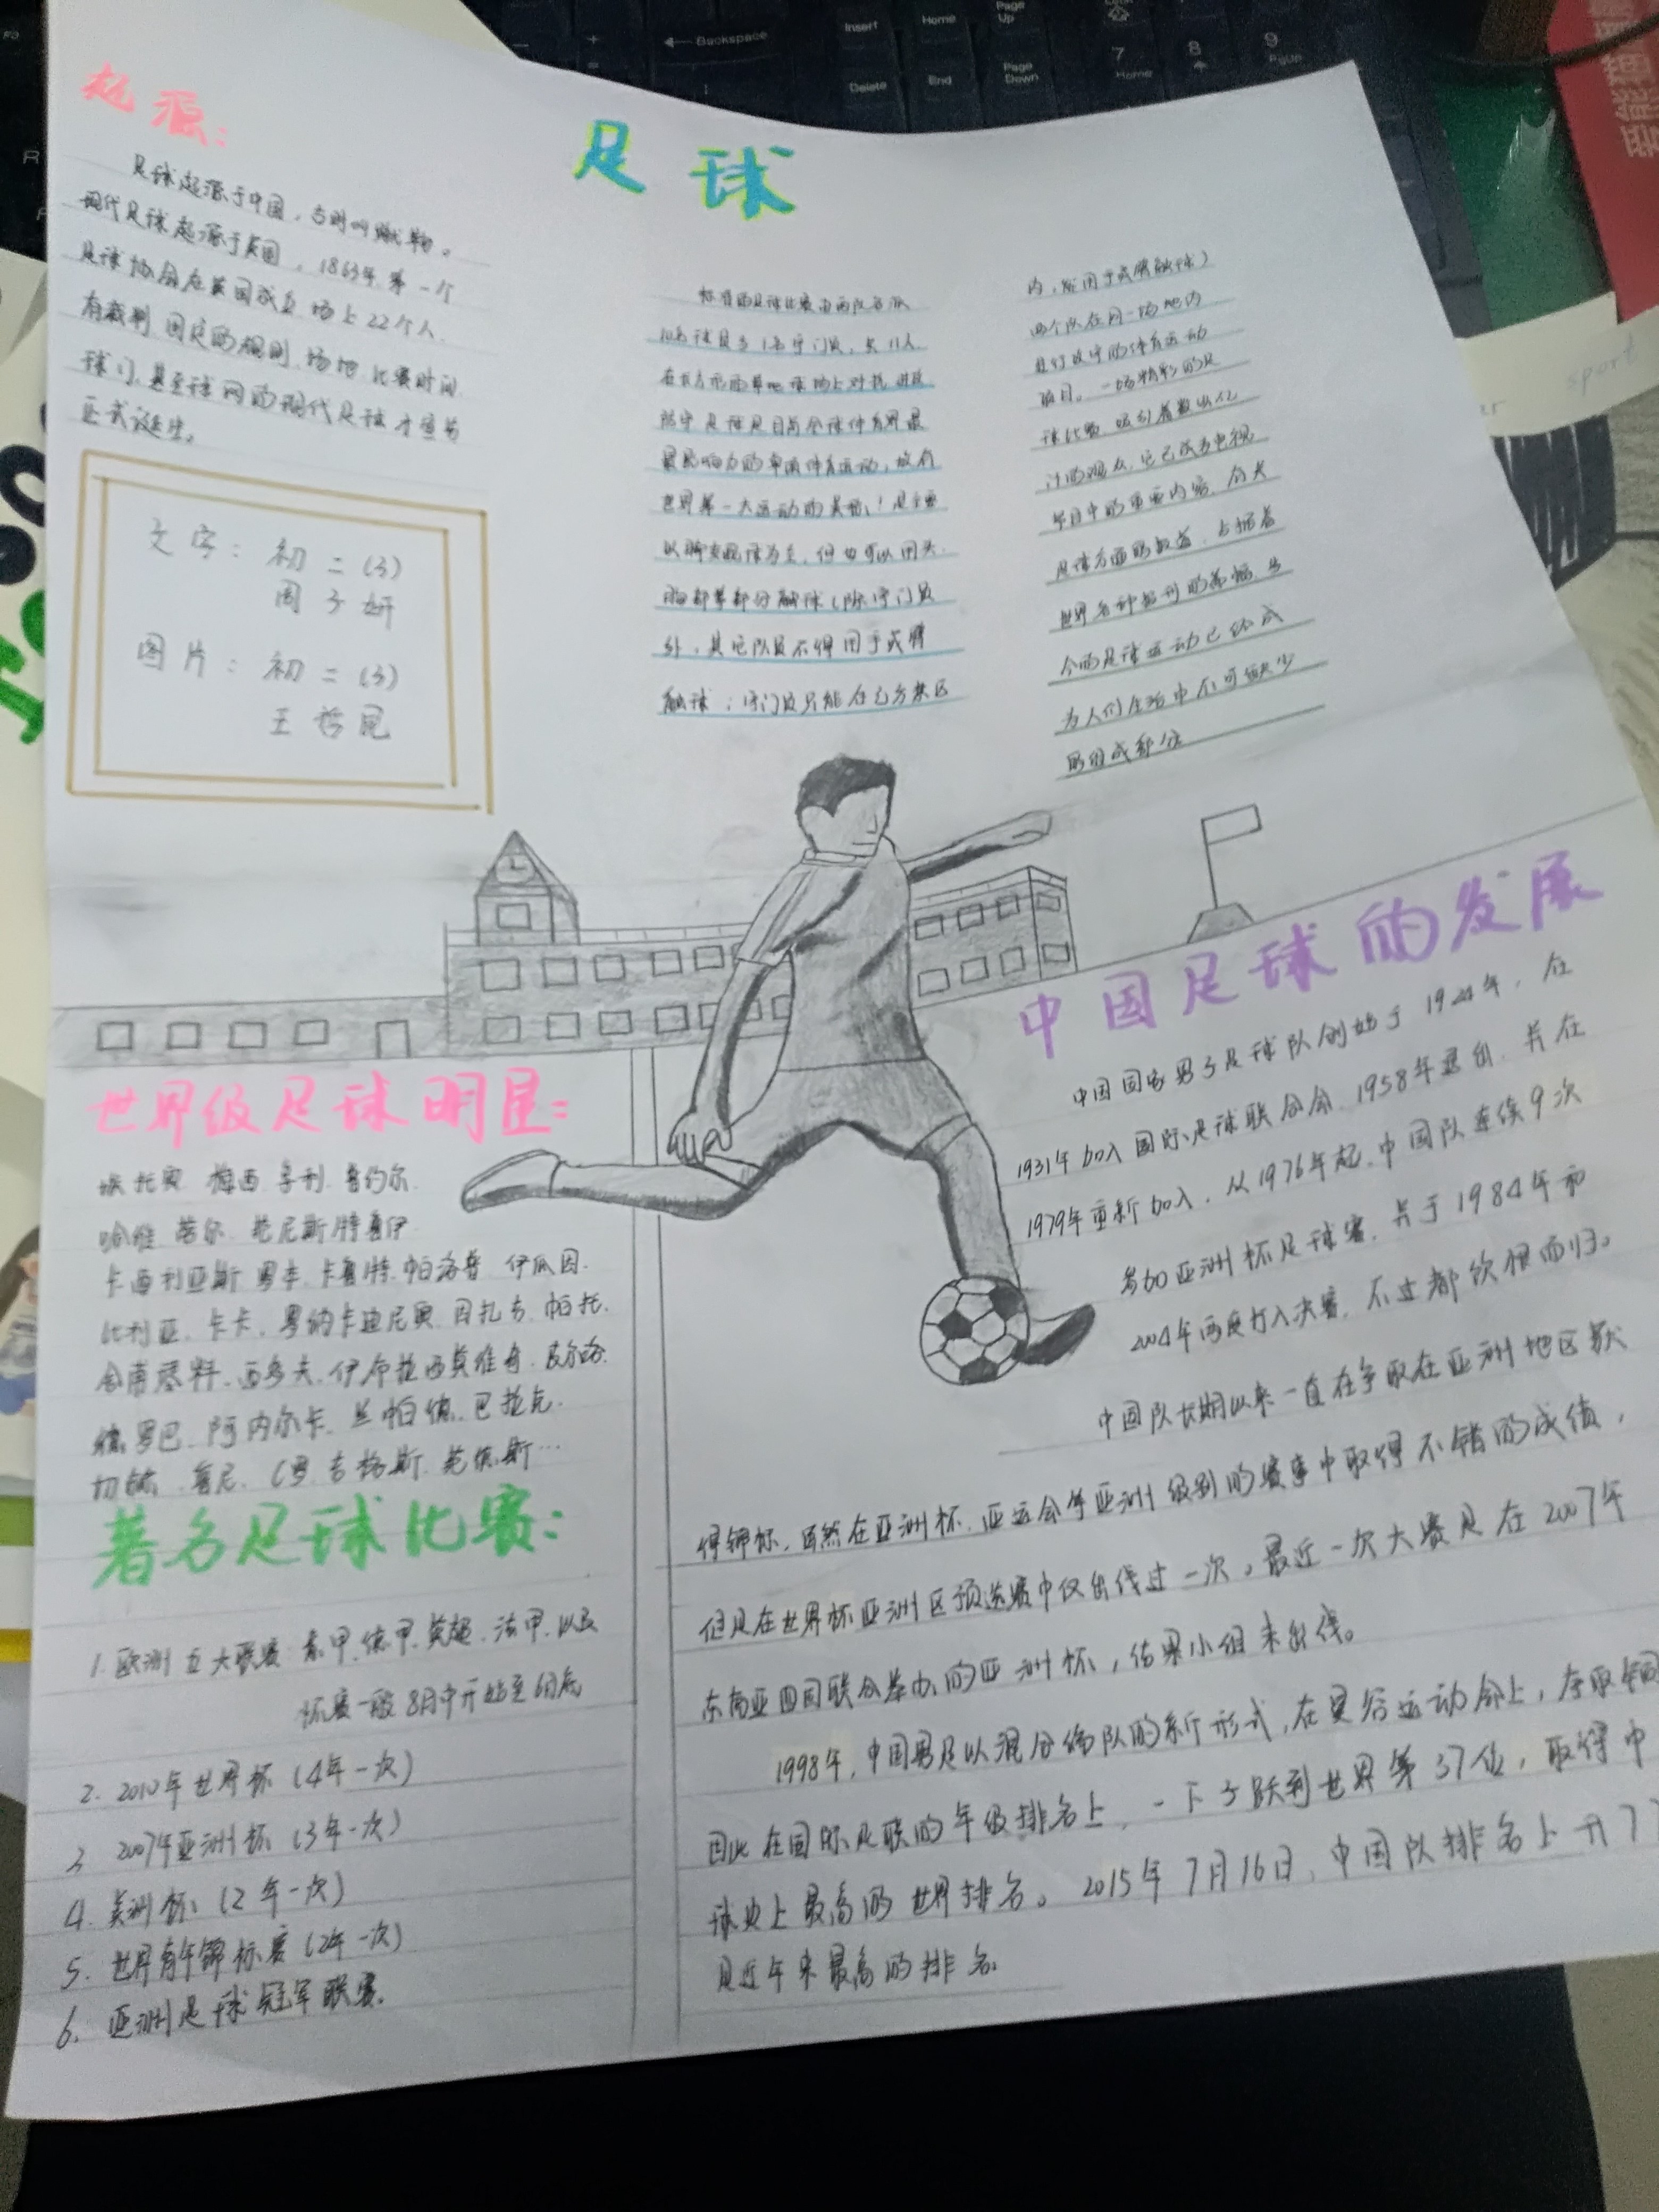 足球
起源：
足球起源于中国，古时叫蹴鞠。
现代足球起源于英国，1863年第一个
足球协会在英国成立 场上22个人
有裁判 固定的规则 场地 比赛时间
球门，甚至球网的现代足球才宣告
正式诞生。
文字：初二（3）
周子妍
图片：初二（3）
王哲昆
标准的足球比赛由两队各派
10名球员与1名守门员，共11人
在长方形的草地球场上对抗 进攻
防守 足球是目前全球体育界最
最具影响力的单项体育运动，故有
世界第一大运动的美称！足主要
以脚支配球为主，但也可以用头
胸部等部分触球（除守门员
外，其它队员不得用手或臂
触球；守门员只能在己方禁区
内，能用手或臂触球）
两个队在同一场地内
进行攻守的体育运动
项目。一场精彩的足
球比赛 吸引着数以亿
计的观众，它已成为电视
节目中的重要内容，有关
足球方面的报道，占据着
世界各种报刊的篇幅，当
今的足球运动已经成
为人们生活中不可缺少
的组成部分
世界级足球明星：
埃托奥 梅西 亨利 普约尔
哈维 劳尔 范尼斯特鲁伊
卡西利亚斯 罗本 卡鲁特 帕洛普 伊瓜因
比利亚 卡卡，罗纳卡迪尼奥 因扎吉 帕托
舍甫琴科 西多夫 伊布拉西莫维奇 皮尔洛
德罗巴 阿内尔卡 兰帕德 巴拉克
切赫 鲁尼 C罗 吉格斯 范德斯…
著名足球比赛：
1. 欧洲五大联赛 意甲 德甲 英超 法甲 以及
杯赛一般8月中开始至6月底
2. 2010年世界杯（4年一次）
3 2007年亚洲杯（3年一次）
4. 美洲杯：（2年一次）
5. 世界青年锦标赛（2年一次）
6. 亚洲足球冠军联赛
中国足球的发展
中国国家男子足球队创始于1924年，在
1931年加入国际足球联合会，1958年退出，并在
1979年重新加入，从1976年起，中国队连续9次
参加亚洲杯足球赛，并于1984年和
2004年两度打入决赛，不过都饮恨而归。
中国队长期以来一直在争取在亚洲地区获
得锦标，虽然在亚洲杯，亚运会等亚洲级别的赛事中取得不错的成绩，
但是在世界杯亚洲区预选赛中仅出线过一次。最近一次大赛是在2007年
东南亚四国联合举办的亚洲杯，结果小组未出线。
1998年，中国男足以混合编队的新形式，在曼谷运动会上，夺取铜
因此在国际足联的年级排名上，一下子跃到世界第37位，取得中
球史上最高的世界排名。2015年7月16日，中国队排名上升77
是近年来最高的排名
Backspace
Insert
Home
Page Up
Delete
End
Page Down
7
Home
8
9
PgUp
sport